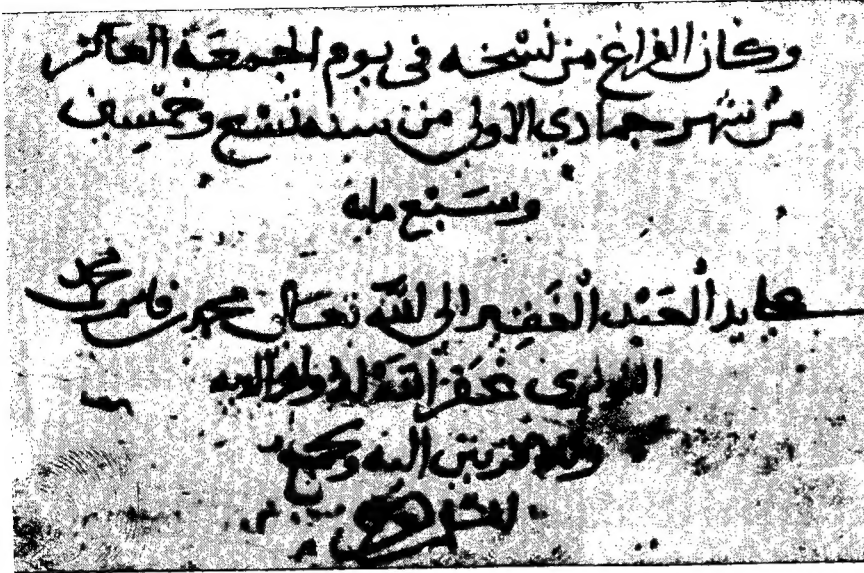 وكان الفراغ من نسخه في يوم الجمعة العاشر
من شهر جمادي الاولى من سنة تسع وخمسين
وسبع ماية
على يد العبد الفقير الى الله تعالى محمد بن قاسم بن محمد
غفر الله له ولوالديه